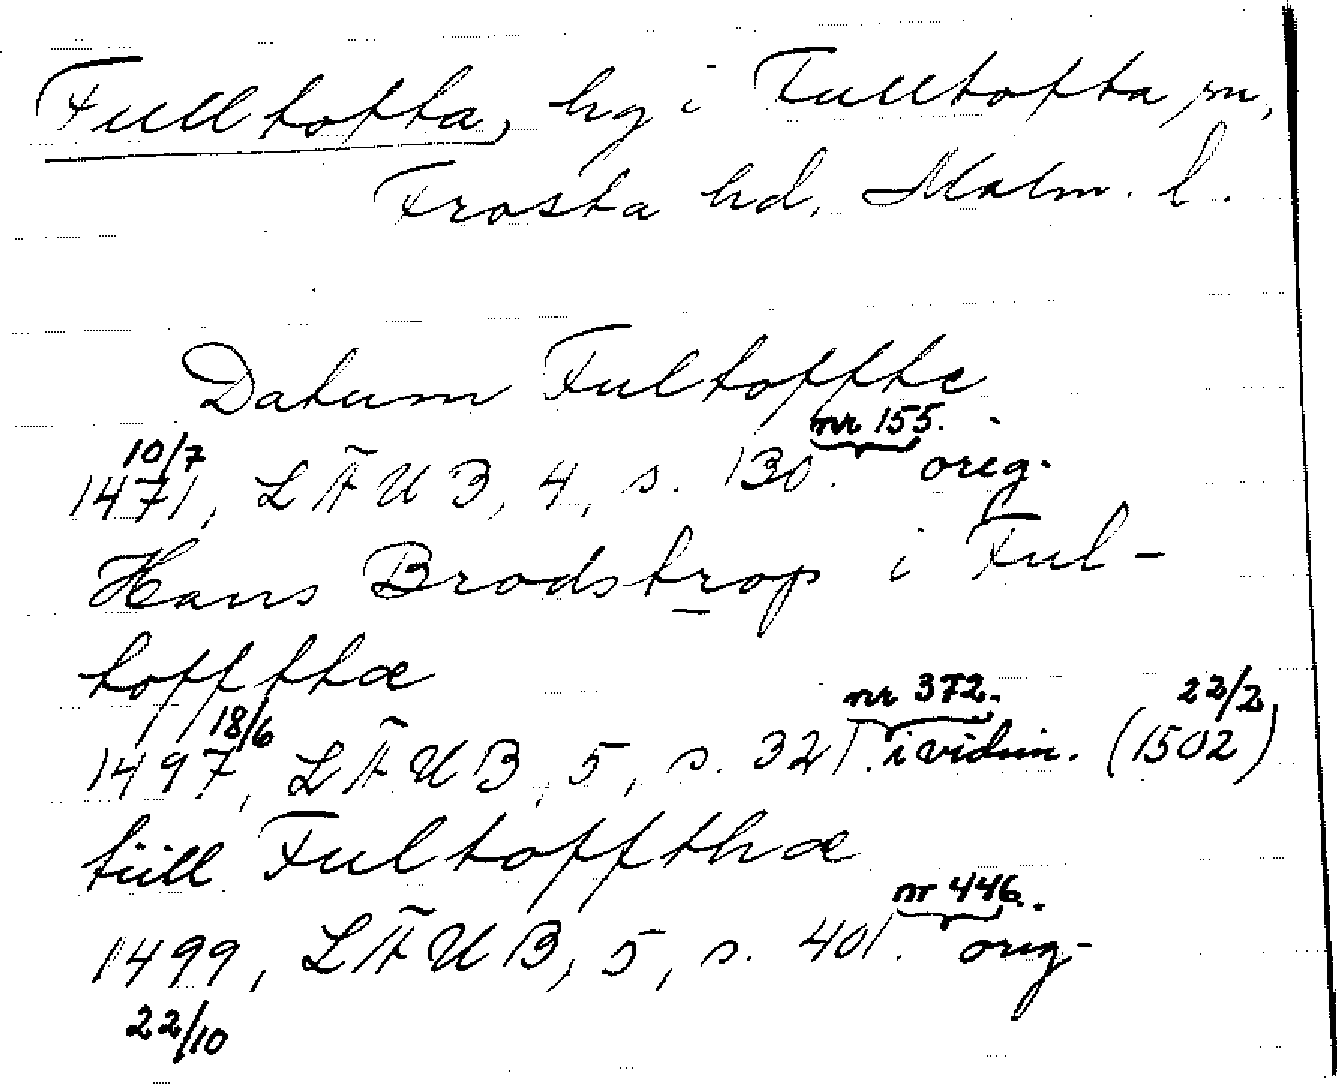 Fulltofta, hg i Fulltofta sn,
Frosta hd, Malm. l.
Datum Fultoffte
10/7 1471, LÄUB, 4, s. 130. nr 155. orig.
Hans Brodstrop i Ful-
toffthæ
18/6 1497, LÄUB, 5, s. 321. nr 372. i vidim. (22/2 1502)
tiill Fultoffthæ
1499, LÄUB, 5, s. 401. nr 446. orig.
22/10